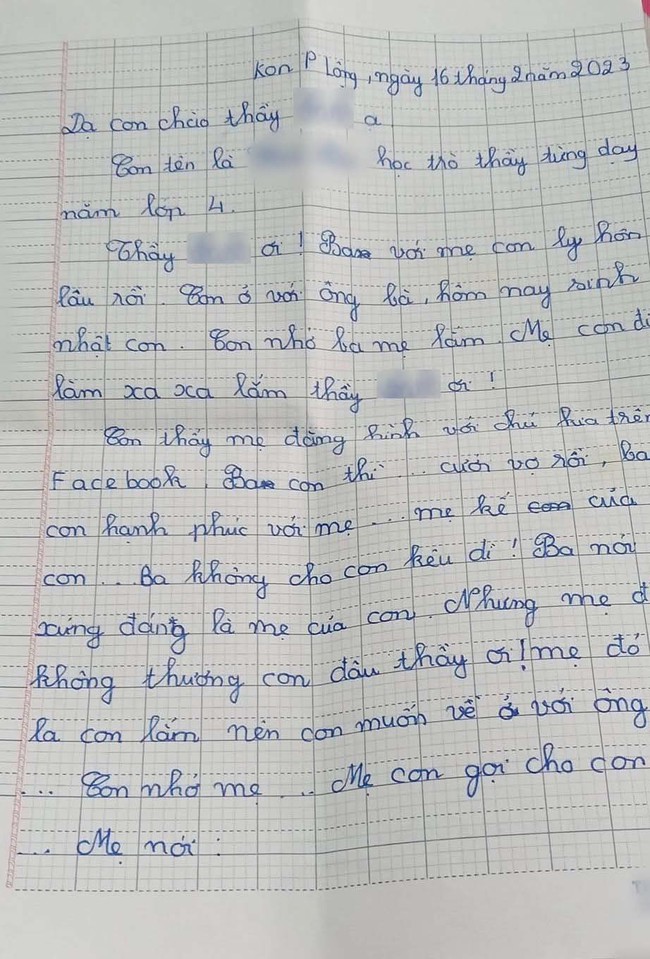 Kon P lông, ngày 16 tháng 2 năm 2023
Dạ con chào thầy ạ
Con tên là học trò thầy từng dạy
năm lớp 4.
Thầy ơi! Ba với mẹ con ly hôn
lâu rồi. Con ở với ông bà, hôm nay sinh
nhật con. Con nhớ ba mẹ lắm. Mẹ con đi
làm xa xa lắm thầy ơi!
Con thấy mẹ đăng hình với chú kia trên
Facebook. Ba con thì ... cưới vợ rồi, Ba
con hạnh phúc với mẹ ... mẹ kế con của
con ... Ba không cho con kêu dì! Ba nói
xứng đáng là mẹ của con. Nhưng mẹ đ
không thương con đâu thầy ơi! mẹ đó
la con lắm nên con muốn về ở với ông
... Con nhớ mẹ ... Mẹ con gọi cho con
... Mẹ nói: